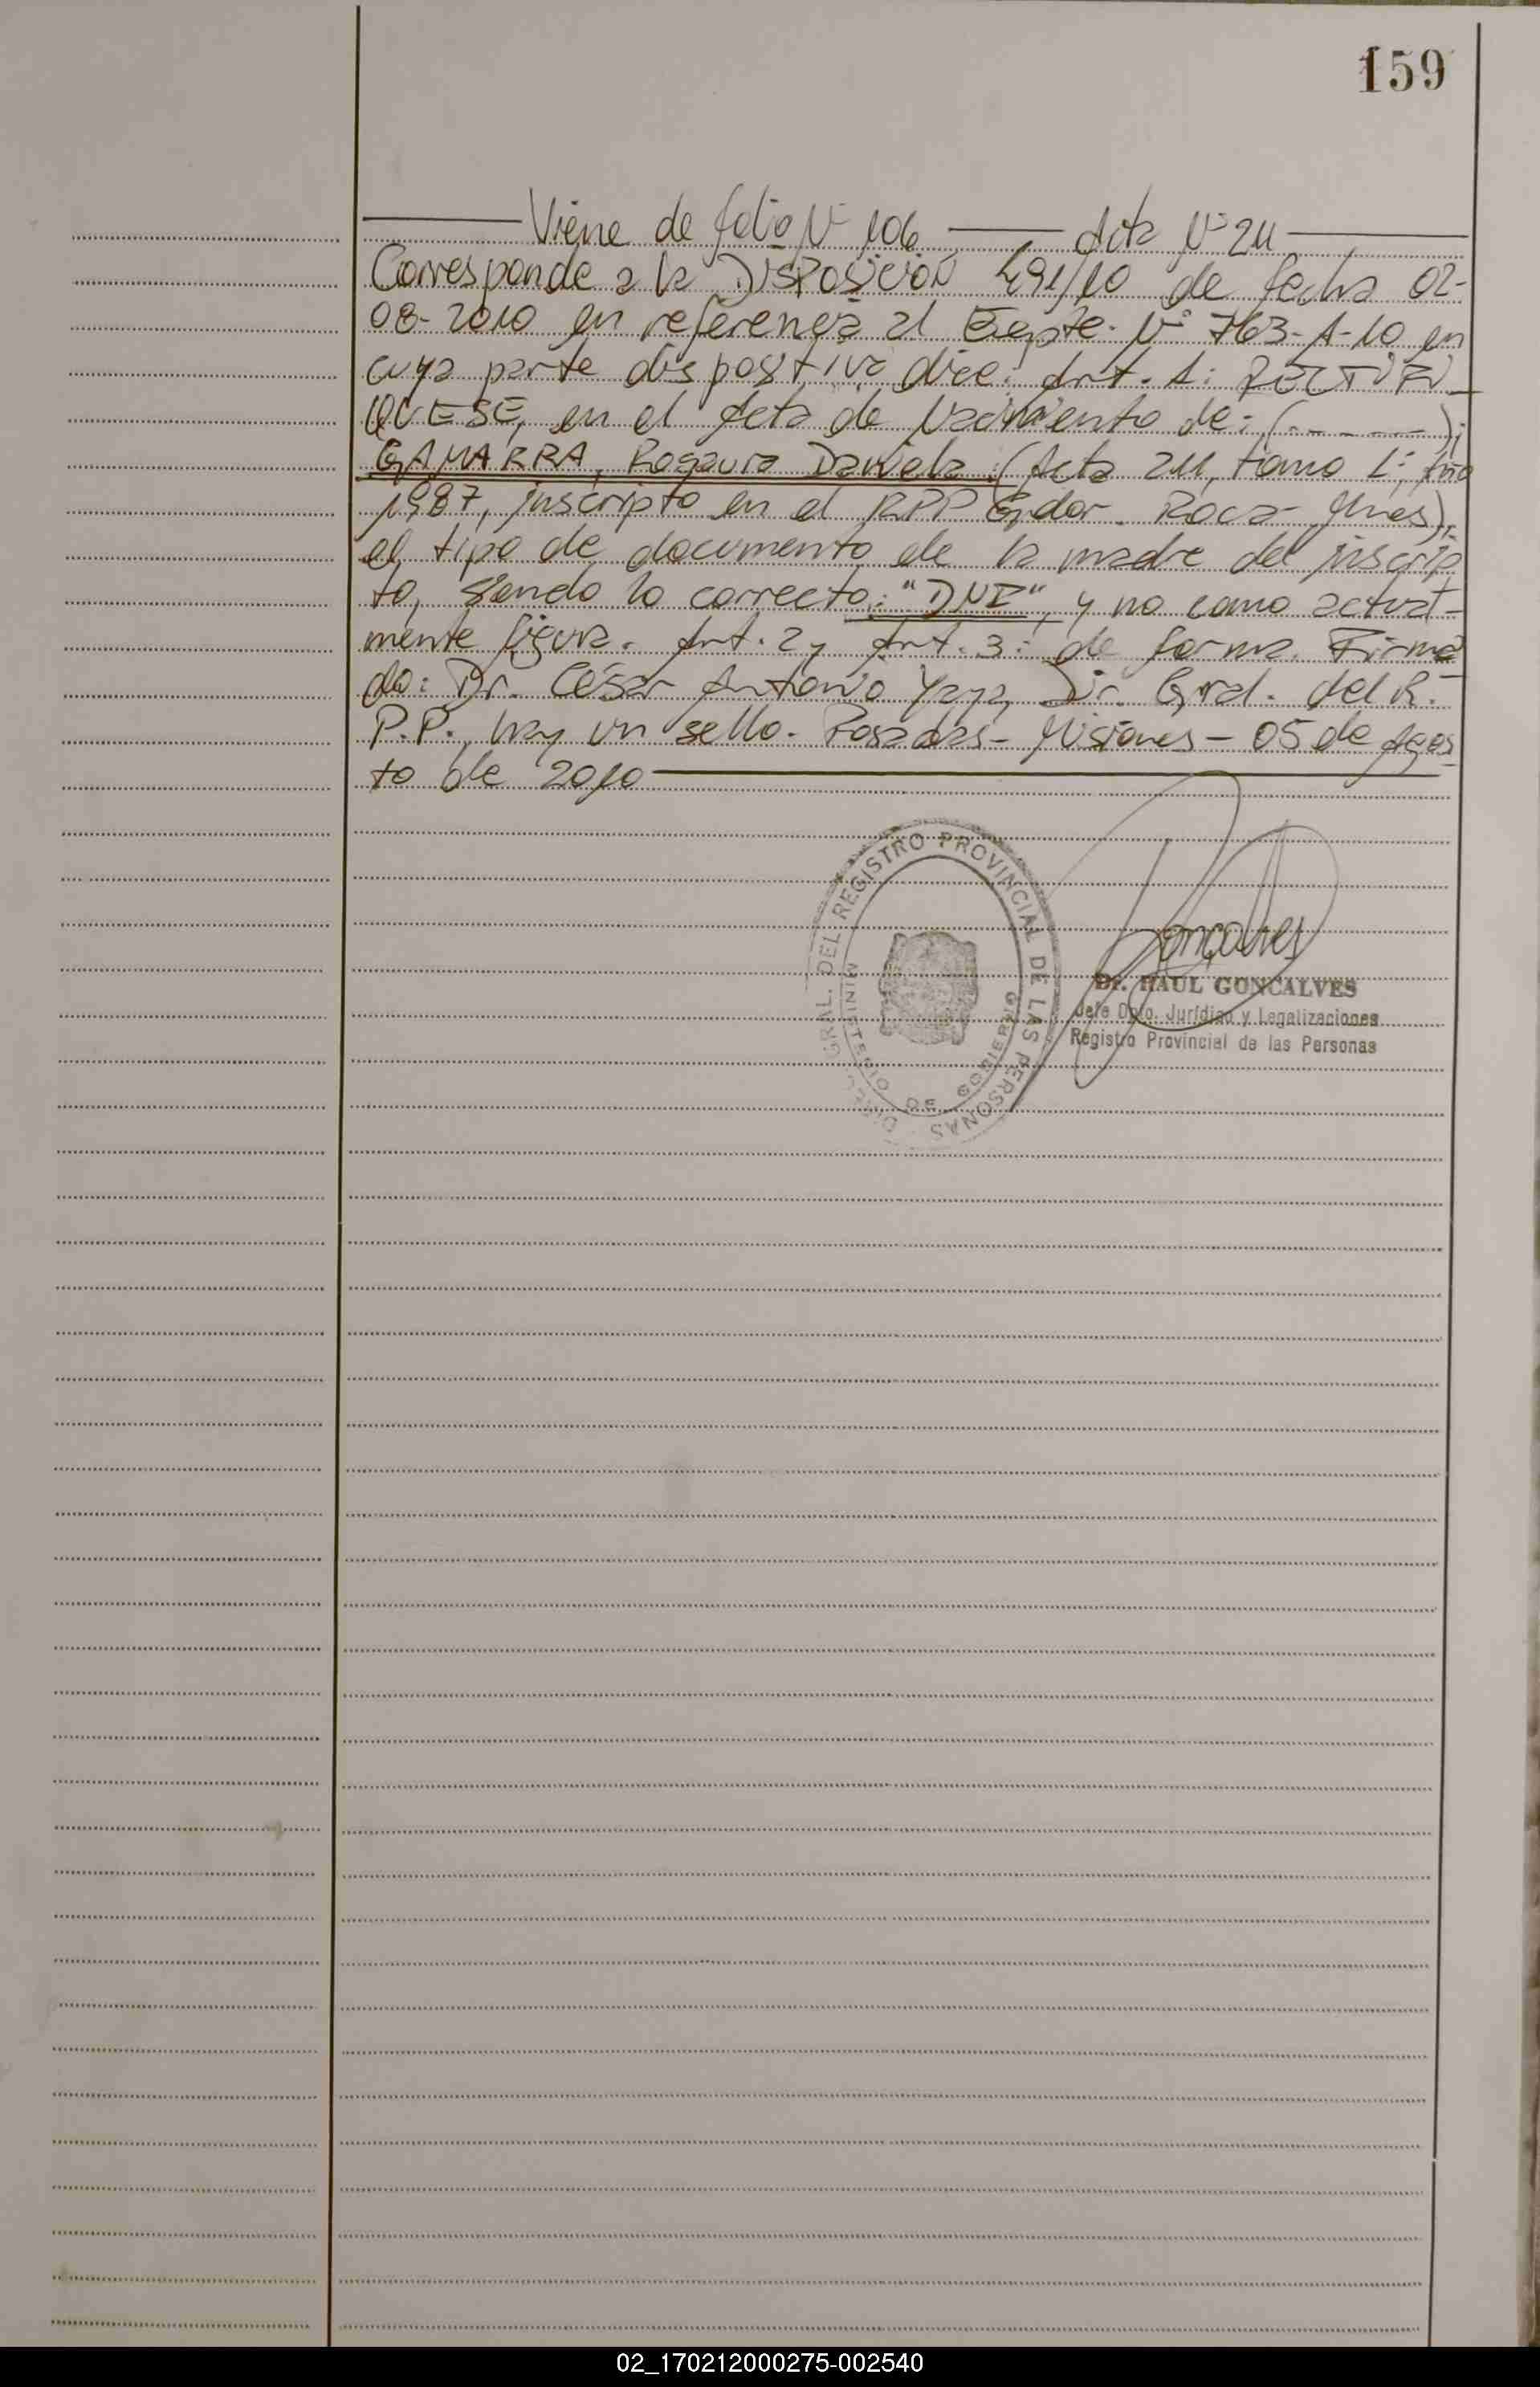 159
Viene de folio Nº 106 Acta Nº 211
Corresponde a la DISPOSICIÓN 491/10 de fecha 02-
08-2010 en referencia al Expte. Nº 763-A-10 en
cuya parte dispositiva dice: Art. 1: RECTIFI
QUESE, en el Acta de Nacimiento de: (------);
GAMARRA, Rosaura Daniela (Acta 211, tomo 1º, Año
1987, inscripto en el RPP Gdor. Roca- Mnes),
el tipo de documento de la madre del inscrip
to, siendo lo correcto: "DNI", y no como actual-
mente figura. Art. 2 y Art. 3: de forma. Firma
do: Dr. César Antonio Yaya, Dir. Gral. del R.
P.P., hay un sello. Posadas- Misiones- 05 de Agos
to de 2010
DIREC GRAL. DEL REGISTRO PROVINCIAL DE LAS PERSONAS
MINISTERIO DE GOBIERNO
Goncalves
Dr. RAUL GONCALVES
Jefe Dpto. Jurídico y Legalizaciones
Registro Provincial de las Personas
02_170212000275-002540